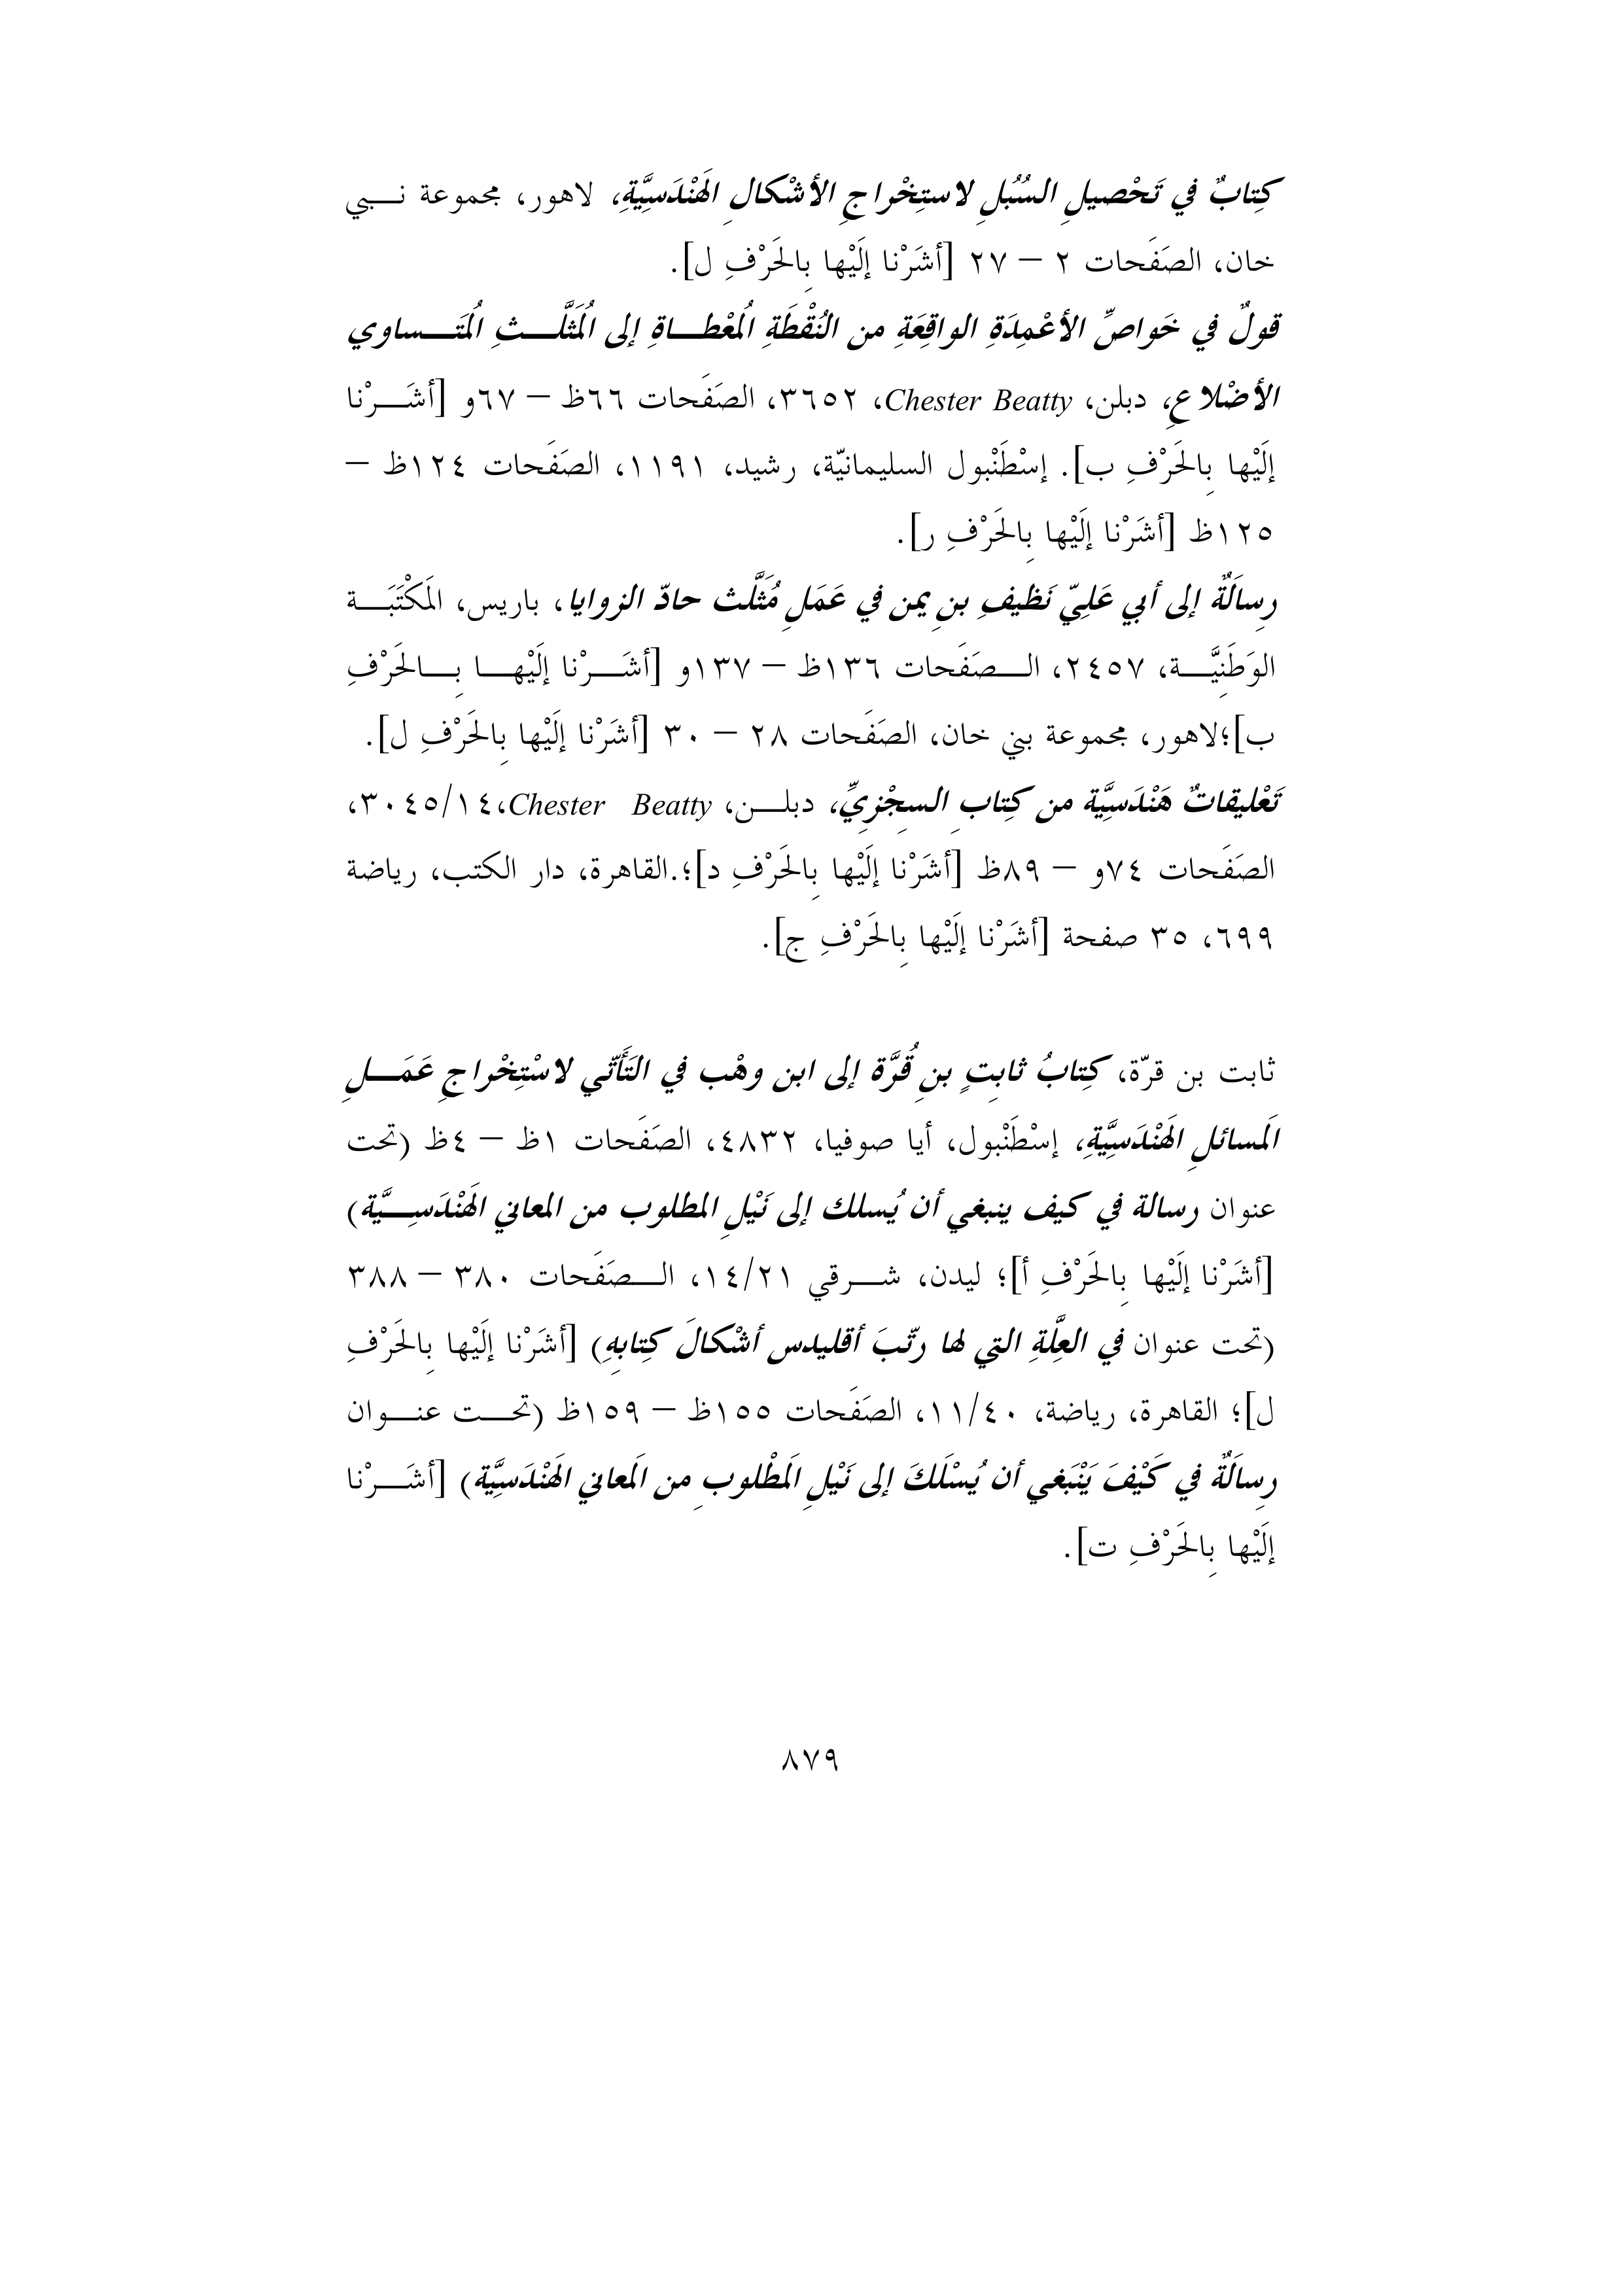 كِتابٌ في تَحْصيلِ السُبُلِ لاستِخْراجِ الأشْكالِ الهَنْدَسِيَّةِ، لاهور، مجموعة نـــبي
خان، الصَفَحات ٢ – ٢٧ [أشَرْنا إلَيْها بِالحَرْفِ ل].
قولٌ في خَواصِّ الأعْمِدَةِ الواقِعَةِ من النُقْطَةِ المُعْطـــاةِ إلى المُثَلَّـــثِ المُتَـــساوي
الأضْلاعِ، دبلن، Chester Beatty، ٣٦٥٢، الصَفَحات ٦٦ظ – ٦٧و [أشَـــرْنا
إلَيْها بِالحَرْفِ ب]. إسْطَنْبول السليمانيّة، رشيد، ١١٩١، الصَفَحات ١٢٤ظ –
١٢٥ظ [أشَرْنا إلَيْها بِالحَرْفِ ر].
رِسالَةٌ إلى أبي عَلِيّ نَظيفِ بنِ يمن في عَمَلِ مُثَلَّث حادّ الزوايا، باريس، المَكْتَبَـــة
الوَطَنِيَّـــة، ٢٤٥٧، الـــصَفَحات ١٣٦ظ – ١٣٧و [أشَـــرْنا إلَيْهـــا بِـــالحَرْفِ
ب]؛لاهور، مجموعة بني خان، الصَفَحات ٢٨ – ٣٠ [أشَرْنا إلَيْها بِالحَرْفِ ل].
تَعْليقاتٌ هَنْدَسِيَّة من كِتابِ السِجْزِيِّ، دبلـــن، Chester Beatty،٣٠٤٥/١٤،
الصَفَحات ٧٤و – ٨٩ظ [أشَرْنا إلَيْها بِالحَرْفِ د]؛.القاهرة، دار الكتب، رياضة
٦٩٩، ٣٥ صفحة [أشَرْنا إلَيْها بِالحَرْفِ ج].
ثابت بن قرّة، كِتابُ ثابِتٍ بنِ قُرَّة إلى ابن وهْب في التَأَتّي لاسْتِخْراجِ عَمَـــلِ
المَسائلِ الهَنْدَسِيَّةِ، إسْطَنْبول، أيا صوفيا، ٤٨٣٢، الصَفَحات ١ظ – ٤ظ (تحت
عنوان رسالة في كيف ينبغي أن يُسلك إلى نَيْلِ المطلوب من المعاني الهَنْدَسِـــيَّة)
[أشَرْنا إلَيْها بِالحَرْفِ أ]؛ ليدن، شـــرقي ١٤/٢١، الـــصَفَحات ٣٨٠ – ٣٨٨
(تحت عنوان في العِلَّةِ التي لها رتّبَ أقليدس أشْكالَ كِتابِهِ) [أشَرْنا إلَيْها بِالحَرْفِ
ل]؛ القاهرة، رياضة، ١١/٤٠، الصَفَحات ١٥٥ظ – ١٥٩ظ (تحـــت عنـــوان
رِسالَةٌ في كَيْفَ يَنْبَغي أن يُسْلَكَ إلى نَيْلِ المَطْلوبِ من المَعاني الهَنْدَسيَّة) [أشَـــرْنا
إلَيْها بِالحَرْفِ ت].
٨٧٩